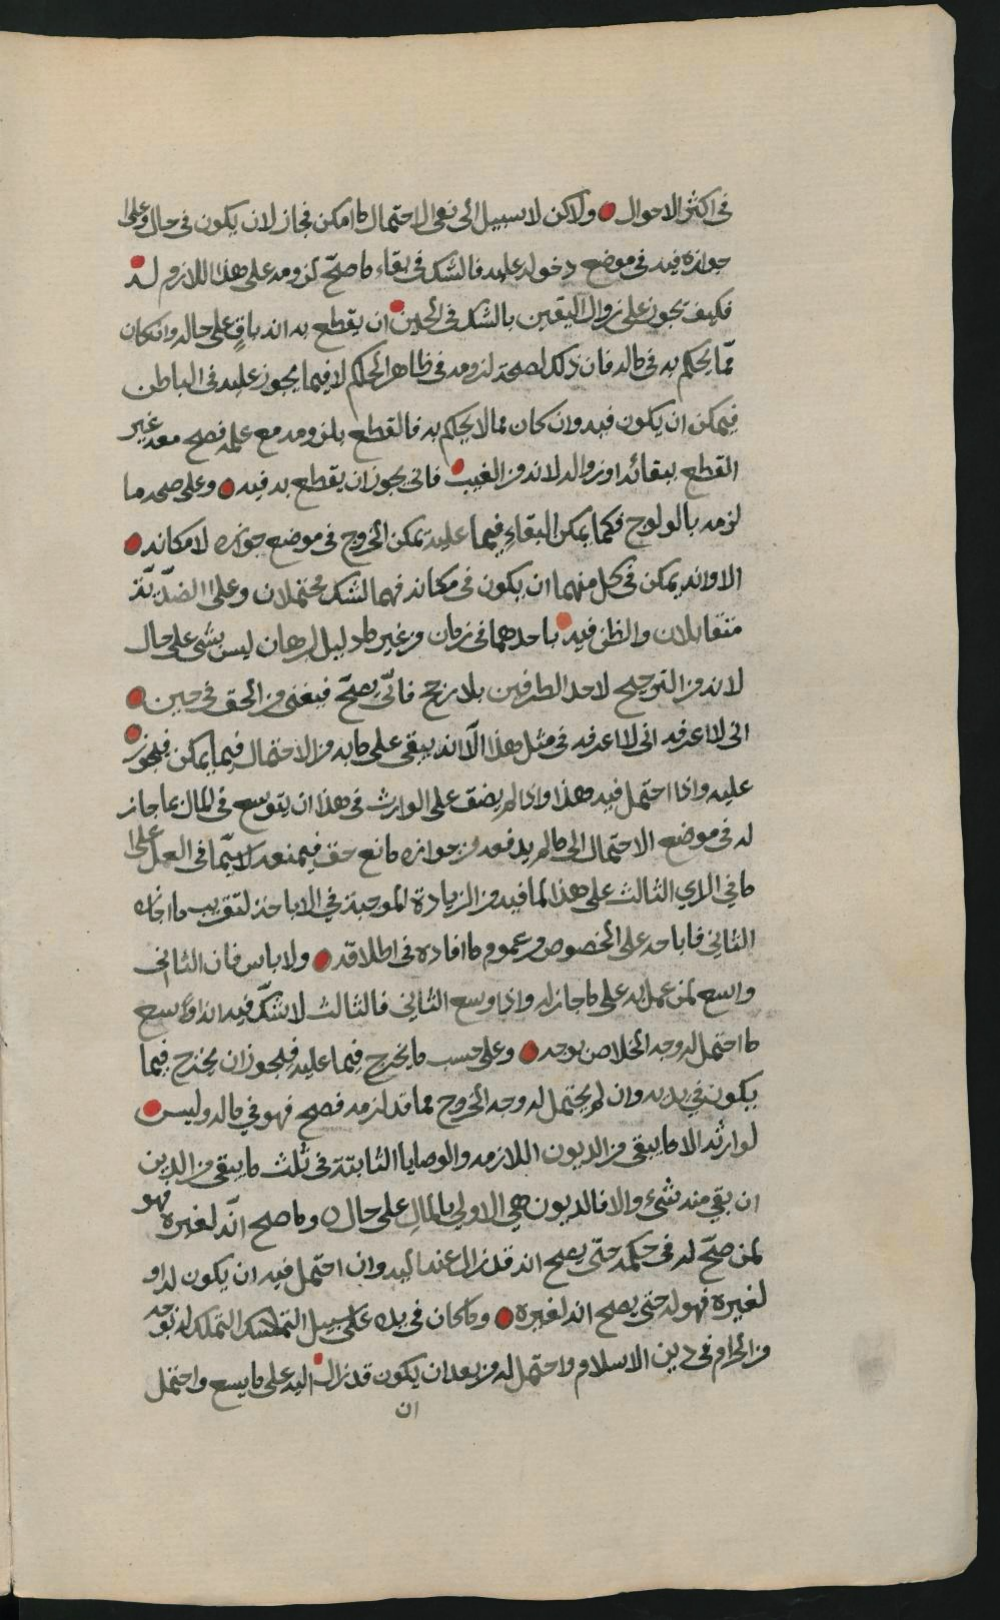 في اكثر الاحوال ولاكن لا سبيل الى نفي الاحتمال ما امكن فجاز لان يكون في حال وعلى
جوازه فيه في موضع دخوله عليه فالشك في بقاء ما صحّ لزومه على هذا اللازم له
فكيف يجوز على زوال اليقين بالشك في الحين ان يقطع به انه باقٍ على حاله وان كان
ممّا يحكم به في ماله فان ذلك لصحة لزومه في ظاهر الحكم لا فيما يجوز عليه في الباطن
فيمكن ان يكون فيه وان كان مما لا يحكم به فالقطع بلزومه مع علمه فصح معه غير
القطع ببقائه او زواله لانه من الغيب فانى يجوز ان يقطع به فيه وعلى صحه ما
لزمه بالولوج فكما يمكن البقاء فيما عليه يمكن الخروج في موضع جوازه لامكانه
الا وانه يمكن في كل منهما ان يكون في مكانه فهما لشك محتملان وعلى الضدّيّة
متقابلان والظن فيه باحدهما في زمان من غير ما دليل لبرهان ليس بشي على حال
لانه من الترجيح لاحد الطرفين بلا مرجح فانّى يصحّ فيغني من الحق في حين
اني لا اعرفه اني لا اعرفه في مثل هذا الّا انه يبقى على ما به من الاحتمال فيما يمكن فيجوز
عليه واذا احتمل فيه هذا واذا لم يضق على الوارث في هذا ان يتوسع في المال بما جاز
له في موضع الاحتمال الى ما لم يدفعه من جوازه مانع حق فيمنعه لا سيّما في العمل على
ما في الراي الثالث على هذا لما فيه من الزيادة الموجبة في الاباحة لتقريب ما اجازه
الثاني فاباحه على الخصوص من عموم ما افاده في اطلاقه ولا باس فان الثاني
واسع لمن عمل به على ما جاز له واذا وسع الثاني فالثالث لا شكّ فيه انه اوسع
ما احتمل له وجه الخلاص بوجه وعلى حسب ما يخرج فيما عليه فيجوز ان يخرج فيما
يكون في يديه وان لم يحتمل له وجه الخروج مما قد لزمه فصح فهو في ماله وليس
لوارثه الا ما يبقى من الديون اللازمه والوصايا الثابتة في ثلث ما يبقى من الدين
ان بقي منه شيء والا فالديون هي الاولى بالمال على حال وما صح انّه لغيره فهو
لمن صحّ له في حكمه حتّى يصح انه قد زال عنه اليه وان احتمل فيه ان يكون له او
لغيره فهو له حتى يصح انه لغيره وما كان في يده على سبيل التمسك التملك له بوجه
من الحرام في دين الاسلام واحتمل له من بعد ان يكون قد زال اليه على ما يسع واحتمل
ان